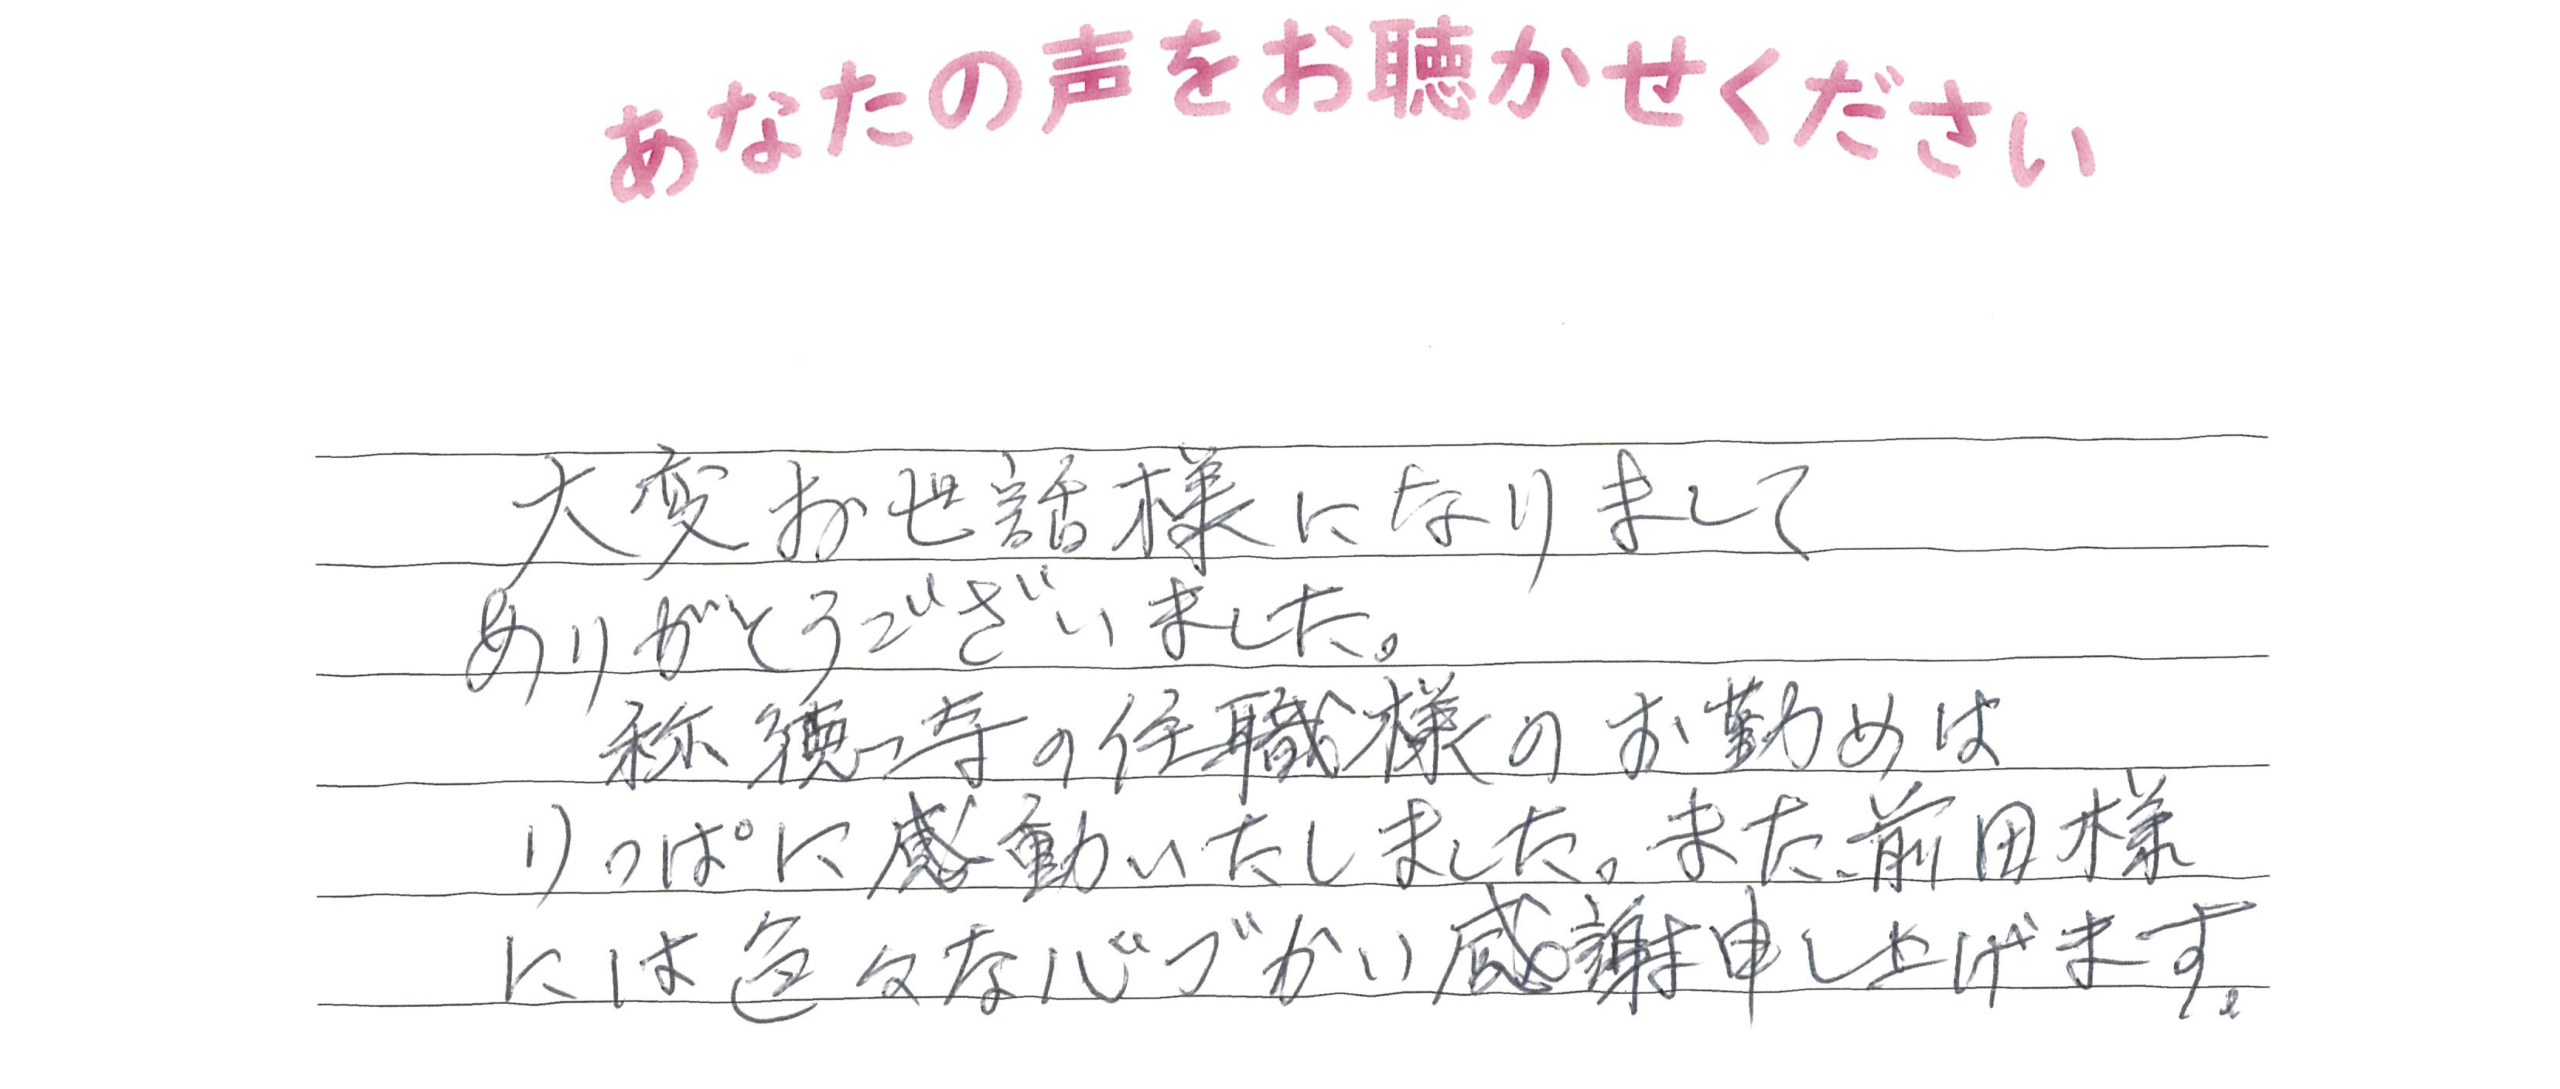 あなたの声をお聴かせください
大変お世話様になりまして
ありがとうございました。
称徳寺の住職様のお勤めは
りっぱに感動いたしました。また前田様
には色々な心づかい感謝申し上げます。